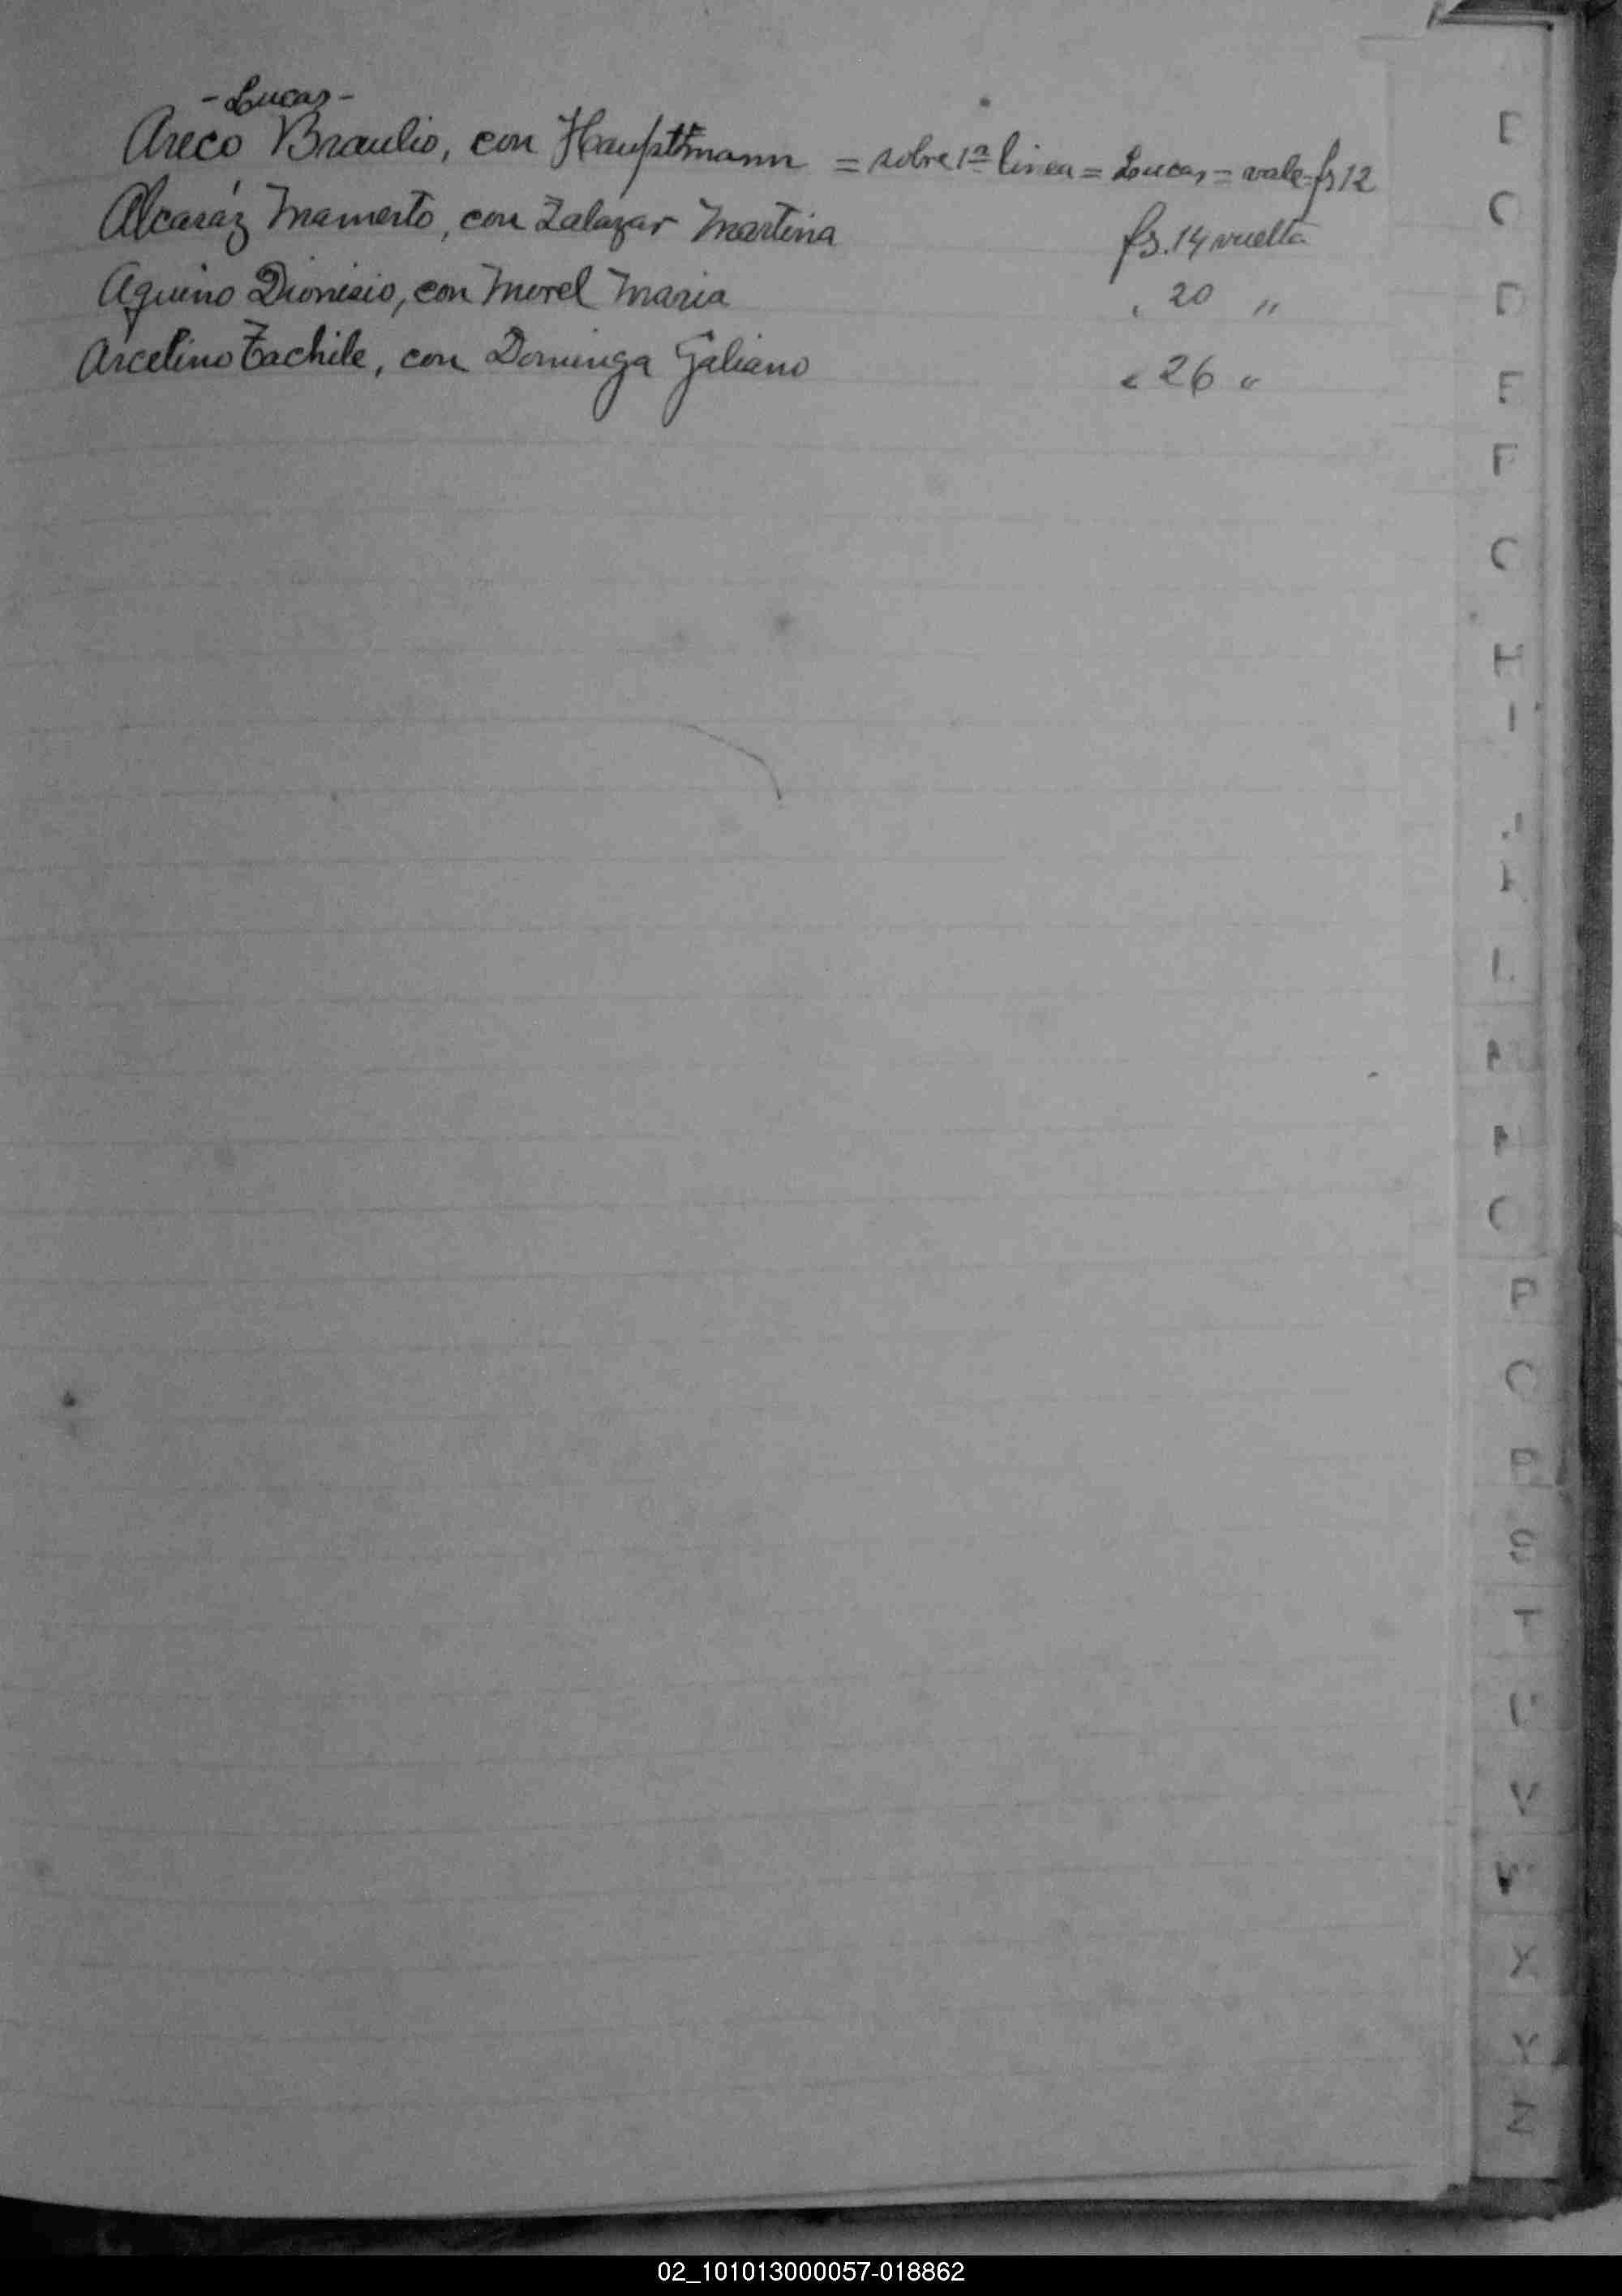 - Lucas -
Areco Braulio, con Haupttmann = sobre 1ª linea = Lucas = vale fs 12
Alcaráz Mamerto, con Zalazar Martina fs. 14 vuelta
Aquino Dionisio, con Morel Maria " 20 "
Arcelino Tachile, con Dominga Galiano " 26 "
D
E
F
H
I
J
L
P
S
T
V
X
Y
Z
02_101013000057-018862